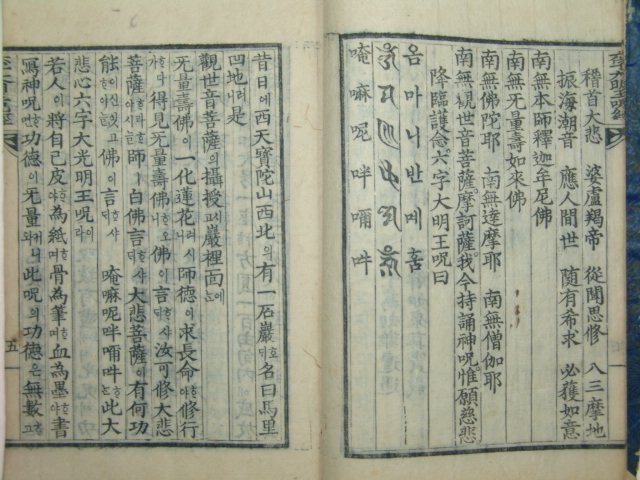 稽首大悲 婆盧羯帝 從聞思修 入三摩地
振海潮音 應人間世 隨有希求 必獲如意
南無本師釋迦牟尼佛
南無无量壽如來佛
南無佛陀耶 南無達摩耶 南無僧伽耶
南無觀世音菩薩摩訶薩我今持誦神呪惟願慈悲
降臨護念六字大明王呪曰
옴 마 니 반 메 훔
唵 嘛 呢 吽 嚩 吽
昔日에西天寶陀山西北의有一石巖호名曰馬里
凹地러是
觀世音菩薩의攝授시巖裡面에
无量壽佛이一化蓮花러시師德이求長命야修行
다가得見无量壽佛오佛이言샤汝可修大悲
菩薩師白佛言샤大悲菩薩이有何功
能이신잇고佛이言샤唵嘛呢吽嚩吽此大
悲心六字大光明王呪라
若人이將自己皮為紙며骨為筆며血為墨야書
寫神呪功德이无量此呪의功德은無數고
五